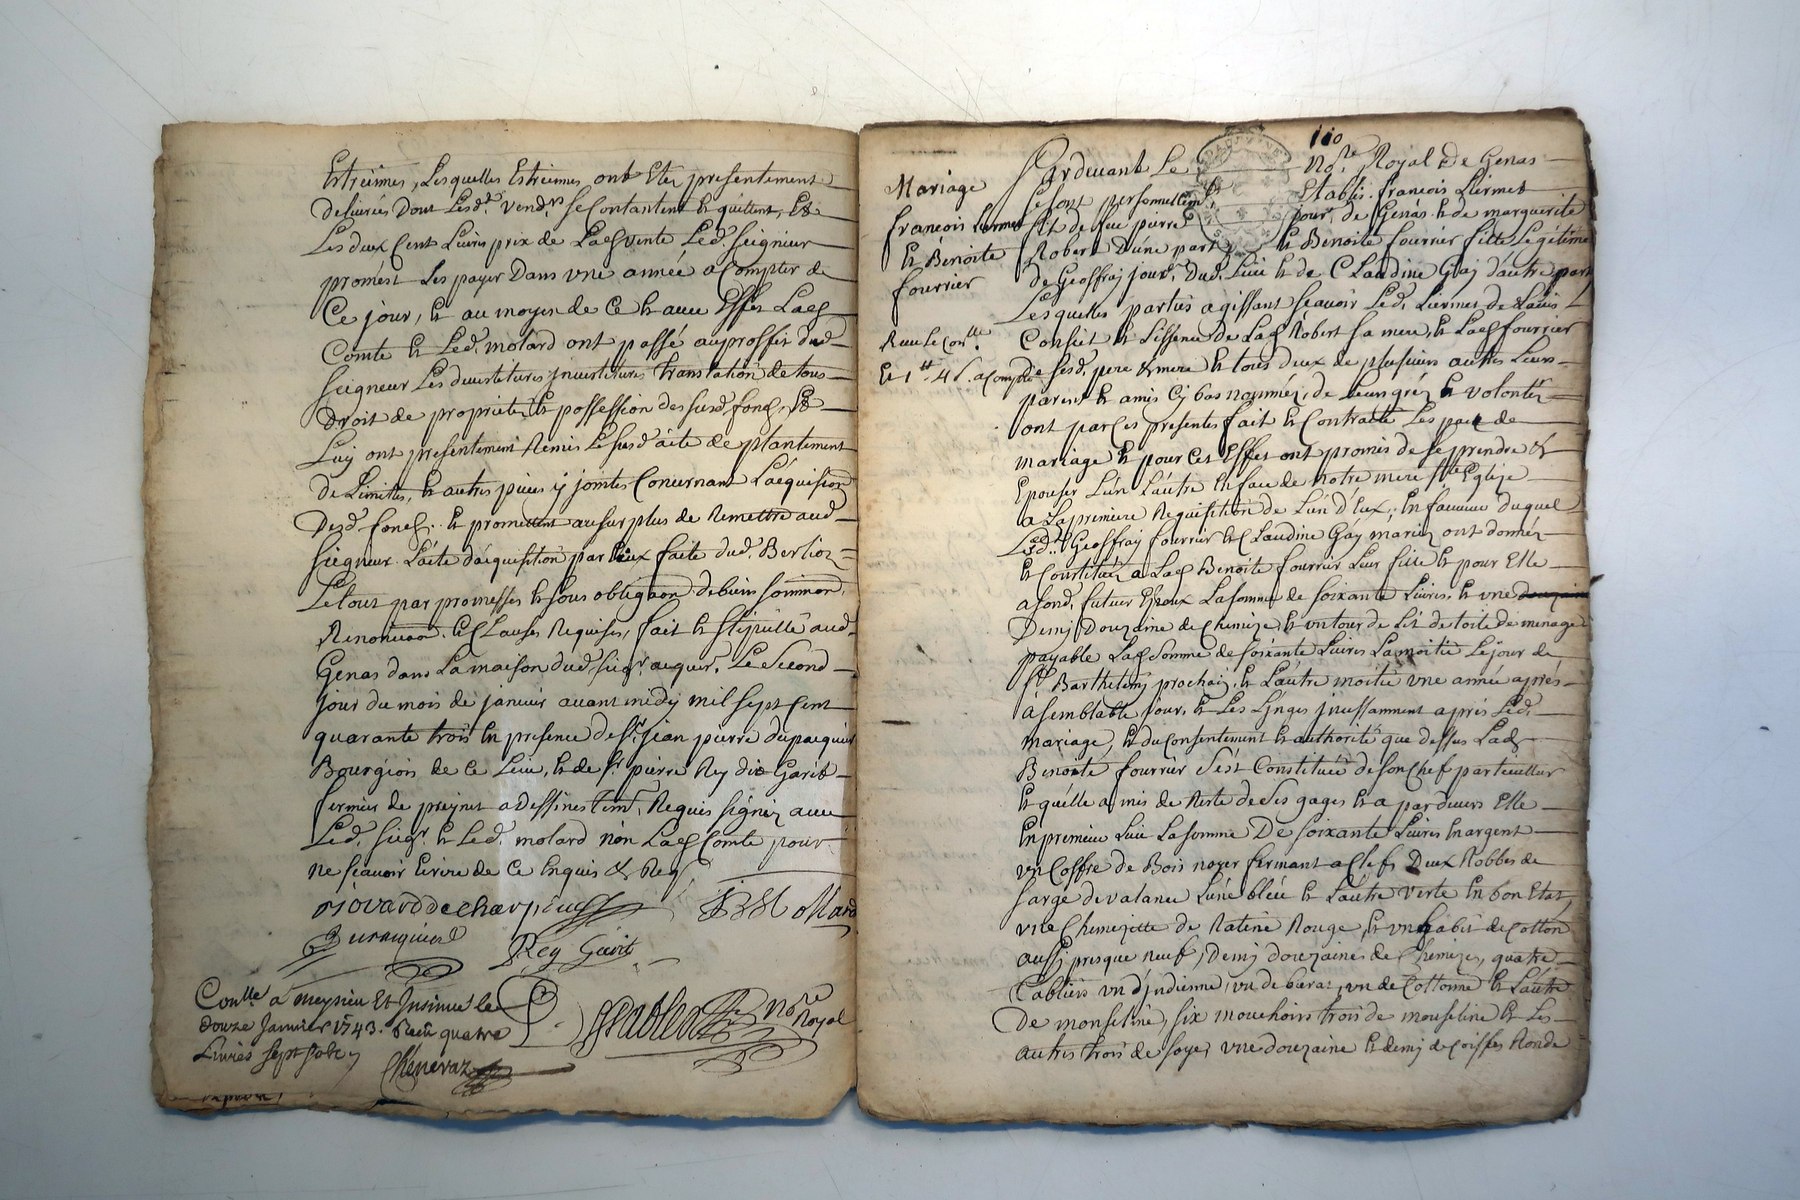 Estreinnes, Lesquelles Estreinnes ont Etez presentement
delivrées Dont Lesd. vend.rs se Contantent Et quittent, Et
Les deux Cent Livres prix de Lad vente Led. seigneur
promést Les payer Dans une année a Compter de
Ce jour, Et au moyen de Ce Et avec Effet Lad
Comte Et Led. molard ont passé au proffit dud
seigneur Les devestitures jnvestitures translation de tous
Droit de proprieté Et possession des susd. fond, Et
Luy ont presentement Remis Le susd acte de plantement
De Limites, Et autres pieces y jointes Concernant L'acquisition
Desd. fond. Et promettent au surplus de Remettre aud
seigneur. L'acte d'acquisition par Eux faite dud. Berlioz
Le tout par promesses Et sous obligaon de biens
Renonciaon. Et Clauses Requises, fait Et stipullé aud.
Genas dans La maison dud. seigr. acquer. Le second
jour du mois de janvier avant midy mil sept cent
quarante trois En presence de Sr. jean pierre dupacquier
Bourgeois de Ce Lieu, Et de Sr. pierre Rey dit Garit
fermier de a Dessines Requis signez avec
Led. seigr. Et Led. molard non Lad Comte pour
ne sçavoir Ecrire de Ce Enquis & Req
Rey Garit
Not.re Royal
Con.lle a meysieu Et Insinué le
douze Janvier 1743. Receu quatre
Livres sept sols
Chenevaz
110
Mariage
françois Liermet
Et Benoite
fourrier
Receu le Con.lle
Et 1 tt 4 s. a Compte
Pardevant Le Not.re Royal de Genas
se sont personnellemt. Etablis. françois Liermet
fils de feu pierre jour. de Genas Et de marguerite
Robert d'une part Et Benoite fourrier fille Legitime
de Geoffray jour. dud. Lieu Et de Claudine Gay d'autre part
Lesquelles parties agissent sçavoir Led. Liermet de L'avis
Conseil Et Lissence de Lad Robert sa mere, Et Lad fourrier
de sesd. pere & mere Et tous deux de plusieurs autres Leurs
parent Et amis Cy bas nommez, de Leur gréz Et volontéz
ont par Ces presentes fait Et Contracté Les pact de
mariage Et pour Cet Effet ont promis de se prendre &
Epouser L'un L'autre En face de notre mere Ste Eglize
a La premiere Requisition de L'un d'Eux; En faveur duquel
Lesd. Geoffray fourrier Et Claudine Gay mariez ont donnéz
Et Constituéz a Lad Benoite fourrier Leur fille Et pour Elle
a sond. futur Epoux La somme de soixante Livres. Et une douzaine
Demj Douzaine de Chemize, Et un tour de Lit de toile de menage
payable Lad somme de soixante Livres La moitié Le jour de
St Barthelemj prochain, Et L'autre moitié une année aprés
a semblable jour. Et Les Linges jncessamment aprés Led.
mariage, Et du Consentement Et authorité que dessus Lad
Benoite fourrier s'est Constituée de son Chef particullier
Et qu'elle a mis de Reste de ses gages Et a pardevers Elle
En premier Lieu La somme De soixante Livres En argent
un Coffre de Bois noyer fermant a Clef, Deux Robbes de
sarge de valance L'une bleüe Et L'autre verte En bon Etat,
une Chemizette de Ratine Rouge, Et un habit de Cotton
aussj presque neuf, Demj douzaines de Chemizes, quatre
Tabliers un d'jndienne, un de burat, un de Cottonne Et L'autre
De mouseline, six mouchoirs trois de mouseline Et Les
autres trois de soye, une douzaine Et demj de Coiffes Ronde